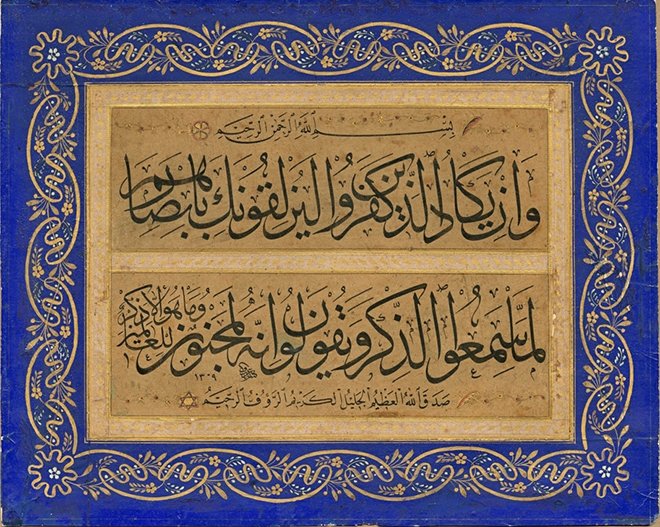 بِسْمِ اللّٰهِ الرَّحْمٰنِ الرَّحِيْمِ
وَاِنْ يَكَادُ الَّذِيْنَ كَفَرُوا لَيُزْلِقُونَكَ بِاَبْصَارِهِمْ
لَمَّا سَمِعُوا الذِّكْرَ وَيَقُولُونَ اِنَّهُ لَمَجْنُونٌ وَمَا هُوَ اِلَّا ذِكْرٌ لِلْعَالَمِينَ
١٣٠٩
صَدَقَ اللّٰهُ الْعَظِيْمُ الْجَلِيْلُ الْكَرِيْمُ الرَّؤُفُ الرَّحِيْمُ